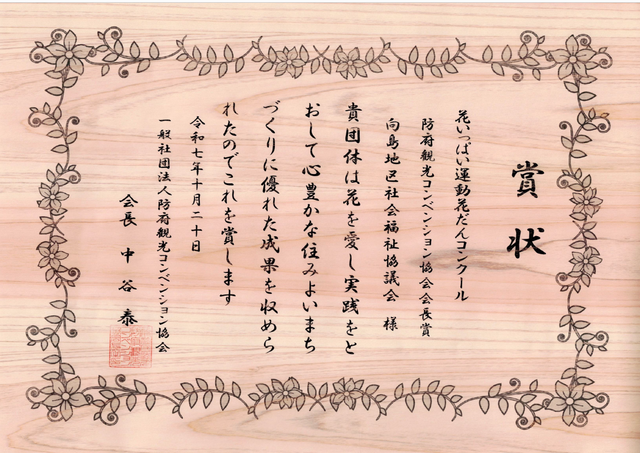 賞状
花いっぱい運動花だんコンクール
防府観光コンベンション協会会長賞
向島地区社会福祉協議会 様
貴団体は花を愛し実践をと
おして心豊かな住みよいまち
づくりに優れた成果を収めら
れたのでこれを賞します
令和七年十月二十日
一般社団法人防府観光コンベンション協会
会長 中谷泰